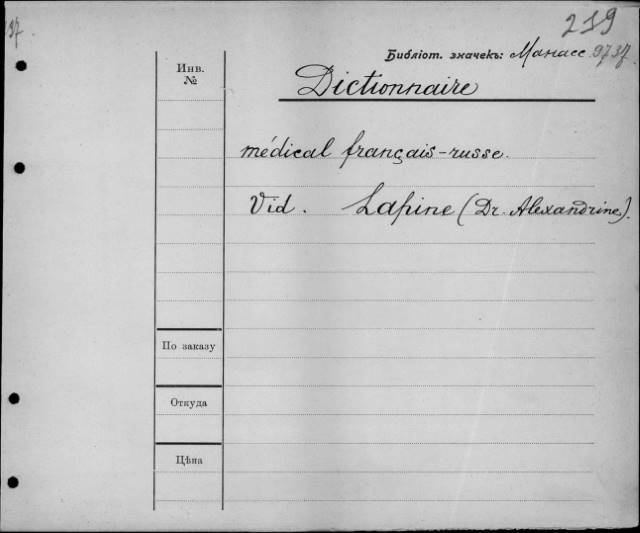 219
37.
Библіот. значекъ: Манасс 9737
Инв. №
Dictionnaire
médical français-russe.
Vid. Lapine (Dr. Alexandrine).
По заказу
Откуда
Цѣна